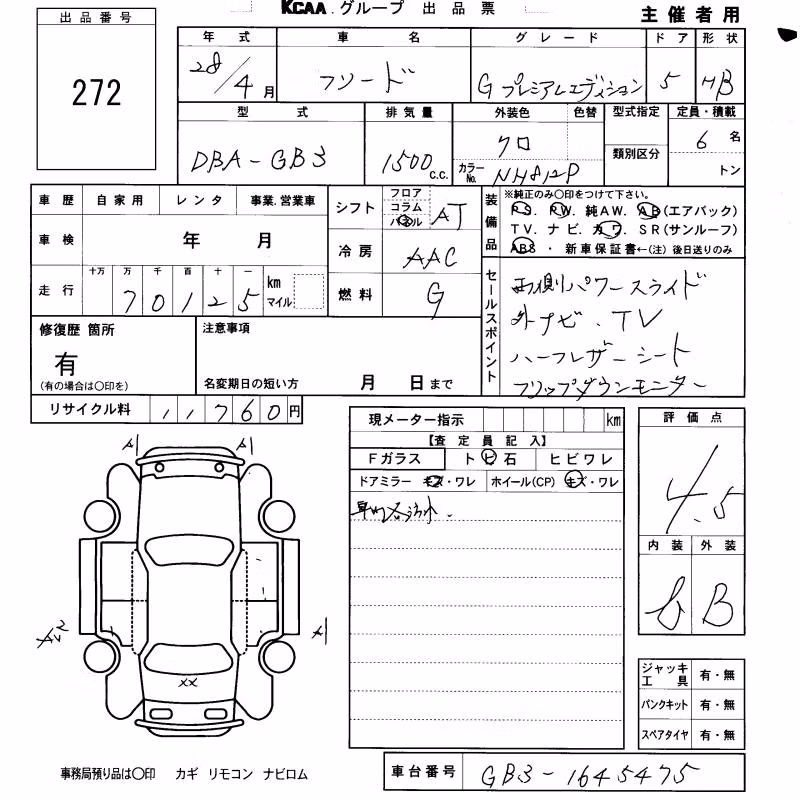 KCAA.グループ 出品票
主催者用
出品番号
272
年式 車名 グレード ドア 形状
28/4月 フリード Gプレミアムエディション 5 HB
型式 排気量 外装色 色替 型式指定 定員・積載
DBA-GB3 1500c.c. クロ カラーNo. NH812P 類別区分 6名 トン
車歴 自家用 レンタ 事業.営業車
車検 年 月
走行 十万 万 千 百 十 一 km マイル
70125
シフト フロア コラム パネル AT
冷房 AAC
燃料 G
装備品
※純正のみ○印をつけて下さい。
PS. PW. 純AW. AB(エアバック)
TV. ナビ. カワ. SR(サンルーフ)
ABS・新車保証書←(注)後日送りのみ
セールスポイント
両側パワースライド
外ナビ、TV
ハーフレザーシート
フリップダウンモニター
修復歴 箇所
有
(有の場合は○印を)
注意事項
名変期日の短い方 月 日まで
リサイクル料 11760円
現メーター指示 km
【査定員記入】
Fガラス トビ石 ヒビワレ
ドアミラー キズ・ワレ ホイール(CP) キズ・ワレ
評価点
4.5
内装 外装
B
A1 A1
A1
XX
ジャッキ工具 有・無
パンクキット 有・無
スペアタイヤ 有・無
事務局預り品は○印 カギ リモコン ナビロム
車台番号 GB3-1645475